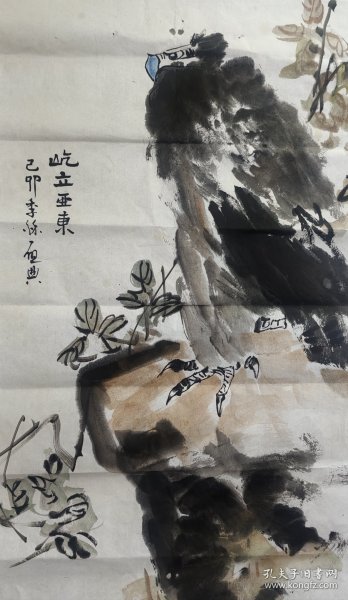 屹立亚東
己卯李
孔夫子旧书网
www.kongfz.com